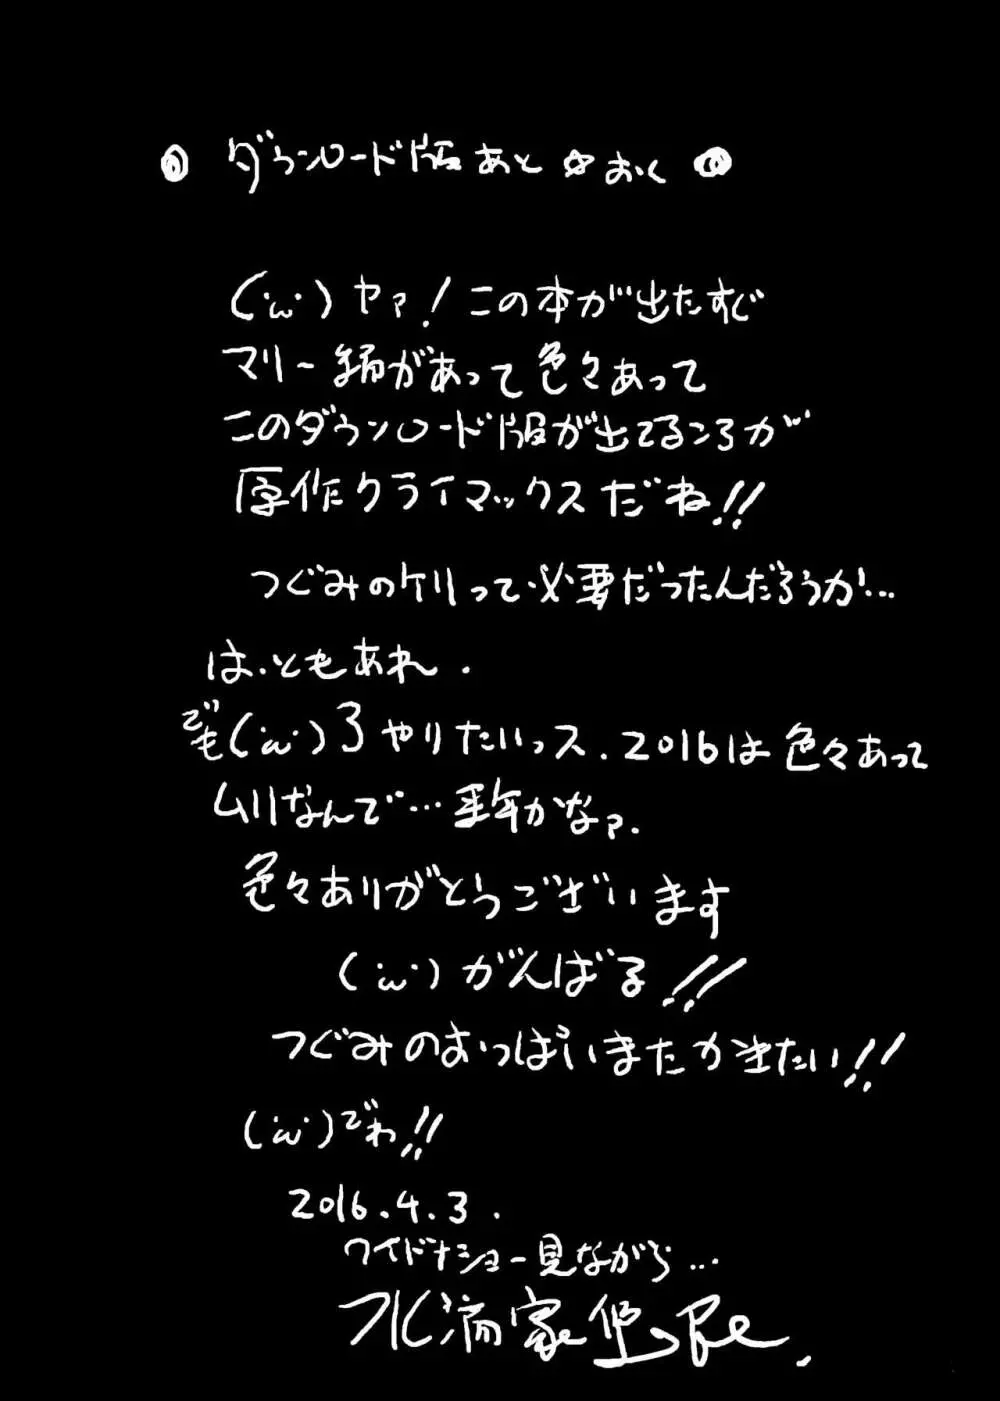 ◎ ダウンロード版あと☆おく ◎
(・ω・)ヤァ!この本が出たすぐ
マリー編があって色々あって
このダウンロード版が出てるころが
原作クライマックスだね!!
つぐみのケリって必要だったんだろうか…
は.ともあれ.
でも(・ω・)3やりたいっス.2016は色々あって
ムリなんで…来年かなァ.
色々ありがとうございます
(・ω・)がんばる!!
つぐみのおっぱいまたかきたい!!
(・ω・)でわ!!
2016.4.3.
ワイドナショー見ながら…